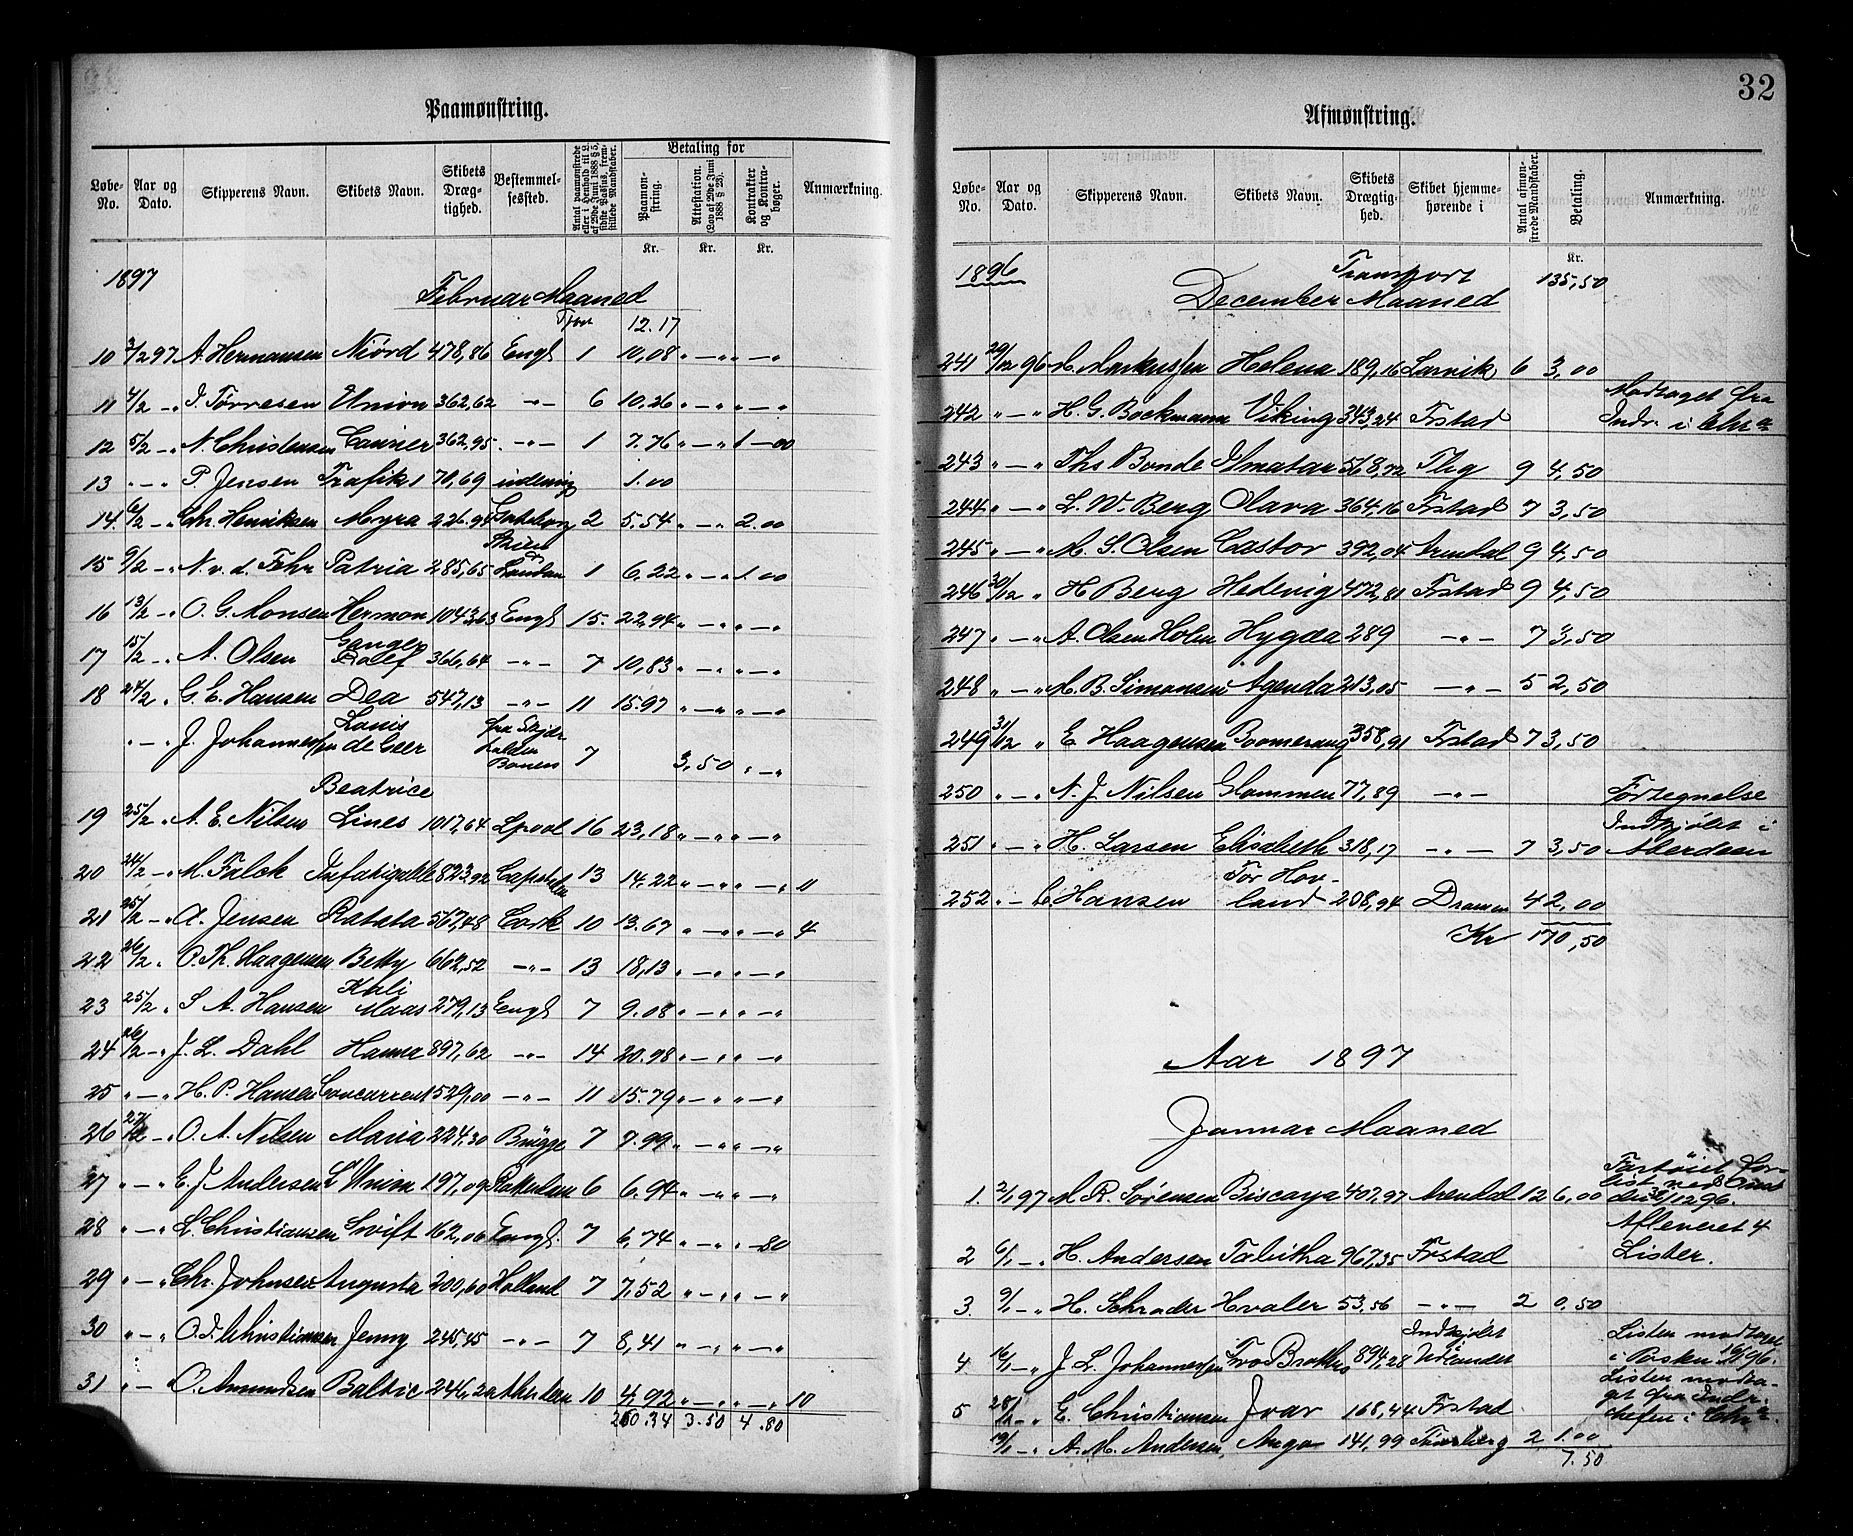 Paamønstring.
Løbe-No. Aar og Dato. Skipperens Navn. Skibets Navn. Skibets Dræg-tighed. Bestemmel-sessted. Antal paamønstrede eller i Henhold til L. af 29de Juni 1888 § 5, sidste Passus, frem-stillede Mandskaber. Betaling for Paamøn-string. Attestation. (Lov af 29de Juni 1888 § 23). Kontrakter og Kontra-bøger. Anmærkning.
Kr. Kr. Kr.
1897 Februar Maaned
Tport 12.17
10 3/2 97 A. Hermansen Niörd 478,86 Engl 1 10,08 " — " " — "
11 4/2 - " J. Törresen Union 362,62 - " - 6 10.26 " — " " — "
12 5/2 - " N. Christensen Courier 362,95 - " - 1 7.76 " — " 1 — 00
13 " - " P. Jensen Trafik 1 70,69 1.00
14 6/2 - " Chr. Henriksen Myra 226.94 2 5.54 " — " 2.00
15 9/2 - " N. v. d. Fehr Patria 285,65 Skien & London 1 6.22 " — " 1.00
16 13/2 - " O. G. Monsen Hermon 1043,63 Engl 15 22,94 " — " " — "
17 15/2 - " A. Olsen Ganger Rolf 366,64 - " - 7 10,83 " — " " — "
18 24/2 - " G. E. Hansen Dea 547,13 - " - 11 15.97 " — " " — "
" - " J. Johannessen Louis de Geer fra 7 3,50 " — "
19 25/2 - " A. E. Nilsen Beatrice Lines 1017,64 Lpool 16 23,18 " — " " — "
20 24/2 - " M. Falck Infatigable 823,92 13 14,22 " — " " — " 11
21 25/2 - " A. Jensen Ratata 567,48 Cork 10 13.67 " — " " — " 4
22 26/2 " O. Th. Haagensen Betty 662,52 - " - 13 18,13 " — " " — "
23 25/2 - " S. A. Hansen Maas 279,13 Engl 7 9.08 " — " " — "
24 26/2 - " J. L. Dahl Hanna 897,62 - " - 14 20.98 " — " " — "
25 " - " H. P. Hansen Concurrent 529,00 - " - 11 15.79 " — " " — "
26 27/2 - " O. A. Nilsen Maria 224,30 Brügge 7 7.99 " — " " — "
27 " - " E. J. Andersen L'Union 197,09 Rotterdam 6 6.94 " — " " — "
28 " - " L. Christiansen Swift 162,06 Engl. 7 6,74 " — " — 80
29 " - " Chr. Johnsen Augusta 200,60 Holland 7 7,52 " — " " — "
30 " - " O. J. Christiansen Jenny 245,45 - " - 7 8,41 " — " " — "
31 " - O. Amundsen Baltic 246,20 10 4,92 " — " " — " 10
260.34 3.50 4.80
32
Afmønstring.
Løbe-No. Aar og Dato. Skipperens Navn. Skibets Navn. Skibets Drægtig-hed. Skibet hjemme-hørende i Antal afmøn-strede Mandskaber. Betaling. Anmærkning.
Kr.
1896 Transport 135,50
December Maaned
241 29/12 96 M. Markussen Helena 189,16 Larvik 6 3,00
242 " — " H. G. Böckmann Viking 343,24 Frstad Modtaget fra Indr. i Chra
243 " — " Ths Bonde Almatar 568,72 Tbg 9 4,50
244 " — " L. W. Berg Clara 364,16 Frstad 7 3,50
245 " — " M. S. Olsen Castor 392,04 Arendal 9 4,50
246 30/12 " H Berg Hedevig 472,81 Frstad 9 4,50
247 " — " A. Olsen Holm Hygæa 289 - " - 7 3,50
248 " — " M. B. Simonsen Agenda 213,05 - " - 5 2,50
249 31/12 " E. Haagensen Boomerang 358,91 Frstad 7 3,50
250 " — " N. J. Nilsen Glommen 77,89 - " - Fortegnelse
251 " — " H. Larsen Elisabeth 318,17 - " - 7 3,50 Indkjöbt i Aberdeen
252 " — C. Hansen Tor Hov-land 208,94 Dramen 4 2,00
Kr 170,50
Aar 1897
Januar Maaned
1. 2/1 97 M. R. Sörensen Biscaya 407,97 Arendal 12 6,00 Fartöiet for-list
2 6/1 - " H. Andersen Tabitha 967,35 Frstad Afleveret 4 Lister.
3. 9/1 - " H. Schrøder Hvaler 53,56 - " - 2 0.50
4 16/1 - " J. L. Johannessen Two Brothers 894,28 Indkjöbt Udlandet Listen modtaget i Posten
5 28/1 - " E. Christiansen Ivar 168,44 Frstad Listen modta-get fra Indr. chefen i Chra.
19/1 - " A. M. Andersen Anga 141,99 2 1.00
7.50